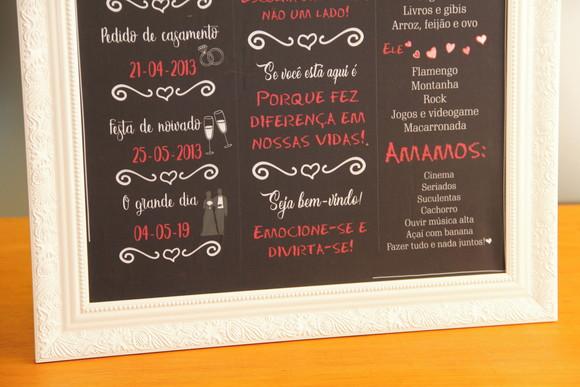 Pedido de casamento
21-04-2013
Festa de noivado
25-05-2013
O grande dia
04-05-19
NÃO UM LADO!
Se você está aqui é
PORQUE FEZ
DIFERENÇA EM
NOSSAS VIDAS!
Seja bem-vindo!
EMOCIONE-SE E
DIVIRTA-SE!
Livros e gibis
Arroz, feijão e ovo
ELE
Flamengo
Montanha
Rock
Jogos e videogame
Macarronada
AMAMOS:
Cinema
Seriados
Suculentas
Cachorro
Ouvir música alta
Açaí com banana
Fazer tudo e nada juntos!